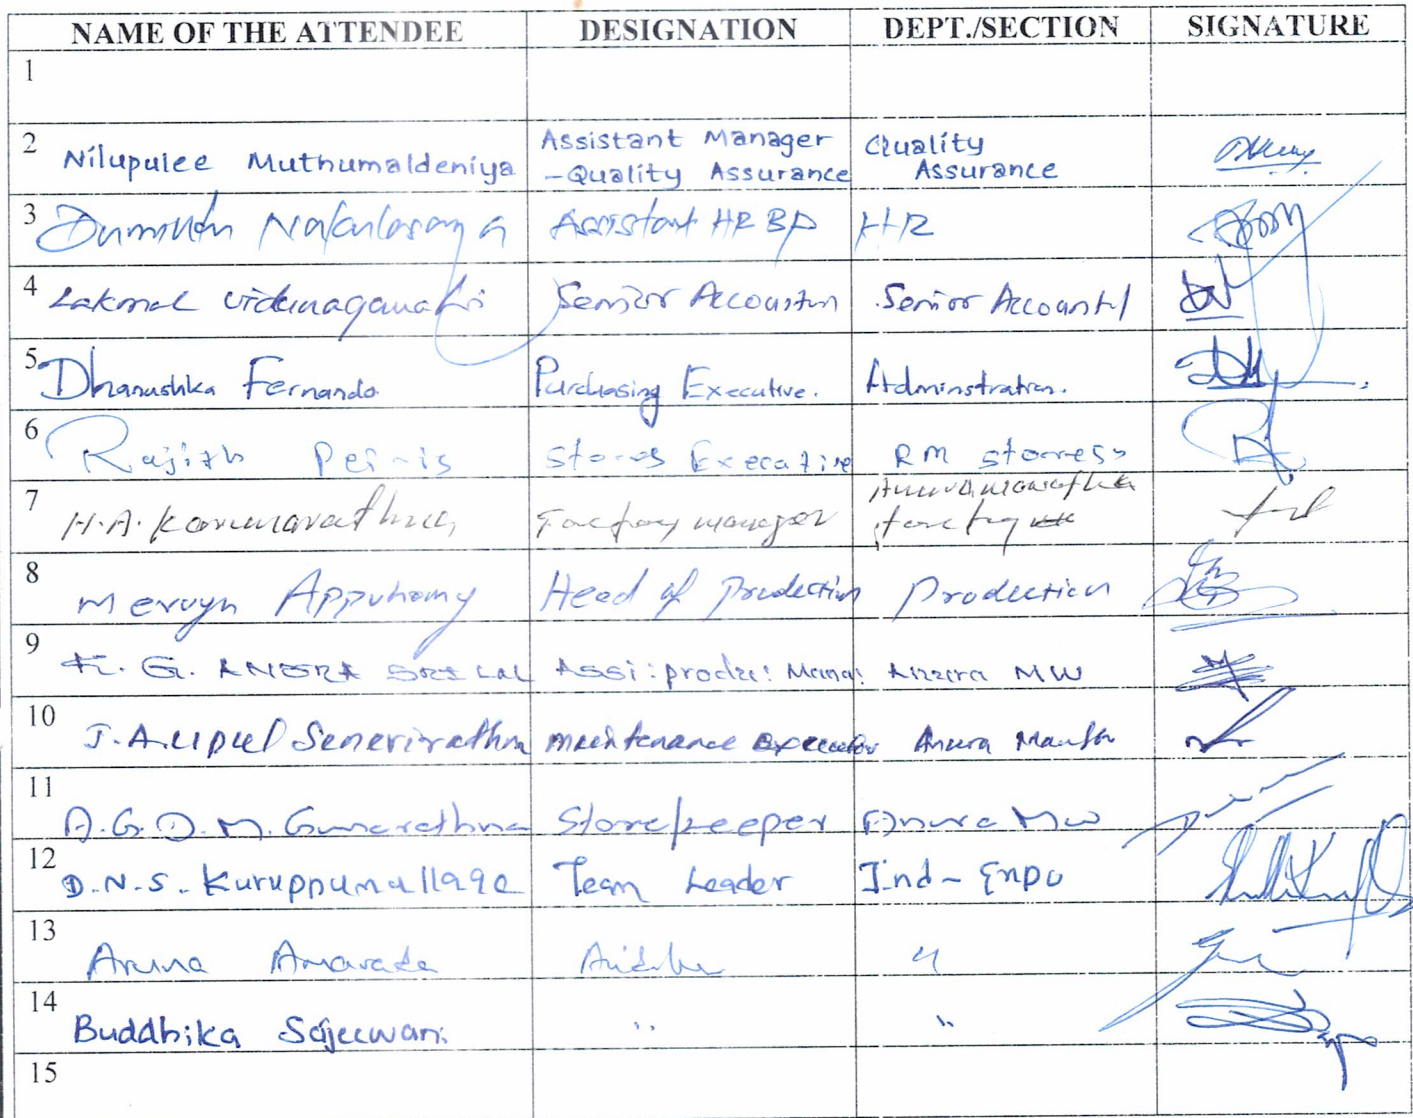 NAME OF THE ATTENDEE DESIGNATION DEPT./SECTION SIGNATURE
1
2 Nilupulee Muthumaldeniya Assistant Manager - Quality Assurance Quality Assurance
3 Assistant HR BP HR
4 Lakmal Senior Accountan Senior Accountl
5 Dhanushka Fernando Purchasing Executive. Adminstration.
6 Rajith Peiris Stores Executive RM storess
7 H.A. Karunarathna Factory manager
8 Mervyn Appuhamy Head of Production Production
9 K. G. Assi: produ: Mana: MW
10 J. A. Upul Senerirathna maintenance Anura
11 A. G. D. M. Gunarathna Storekeeper Anura MW
12 D. N. S. Kuruppumullage Team Leader Ind - Expo
13 Aruna "
14 Buddhika Sajeewani " "
15